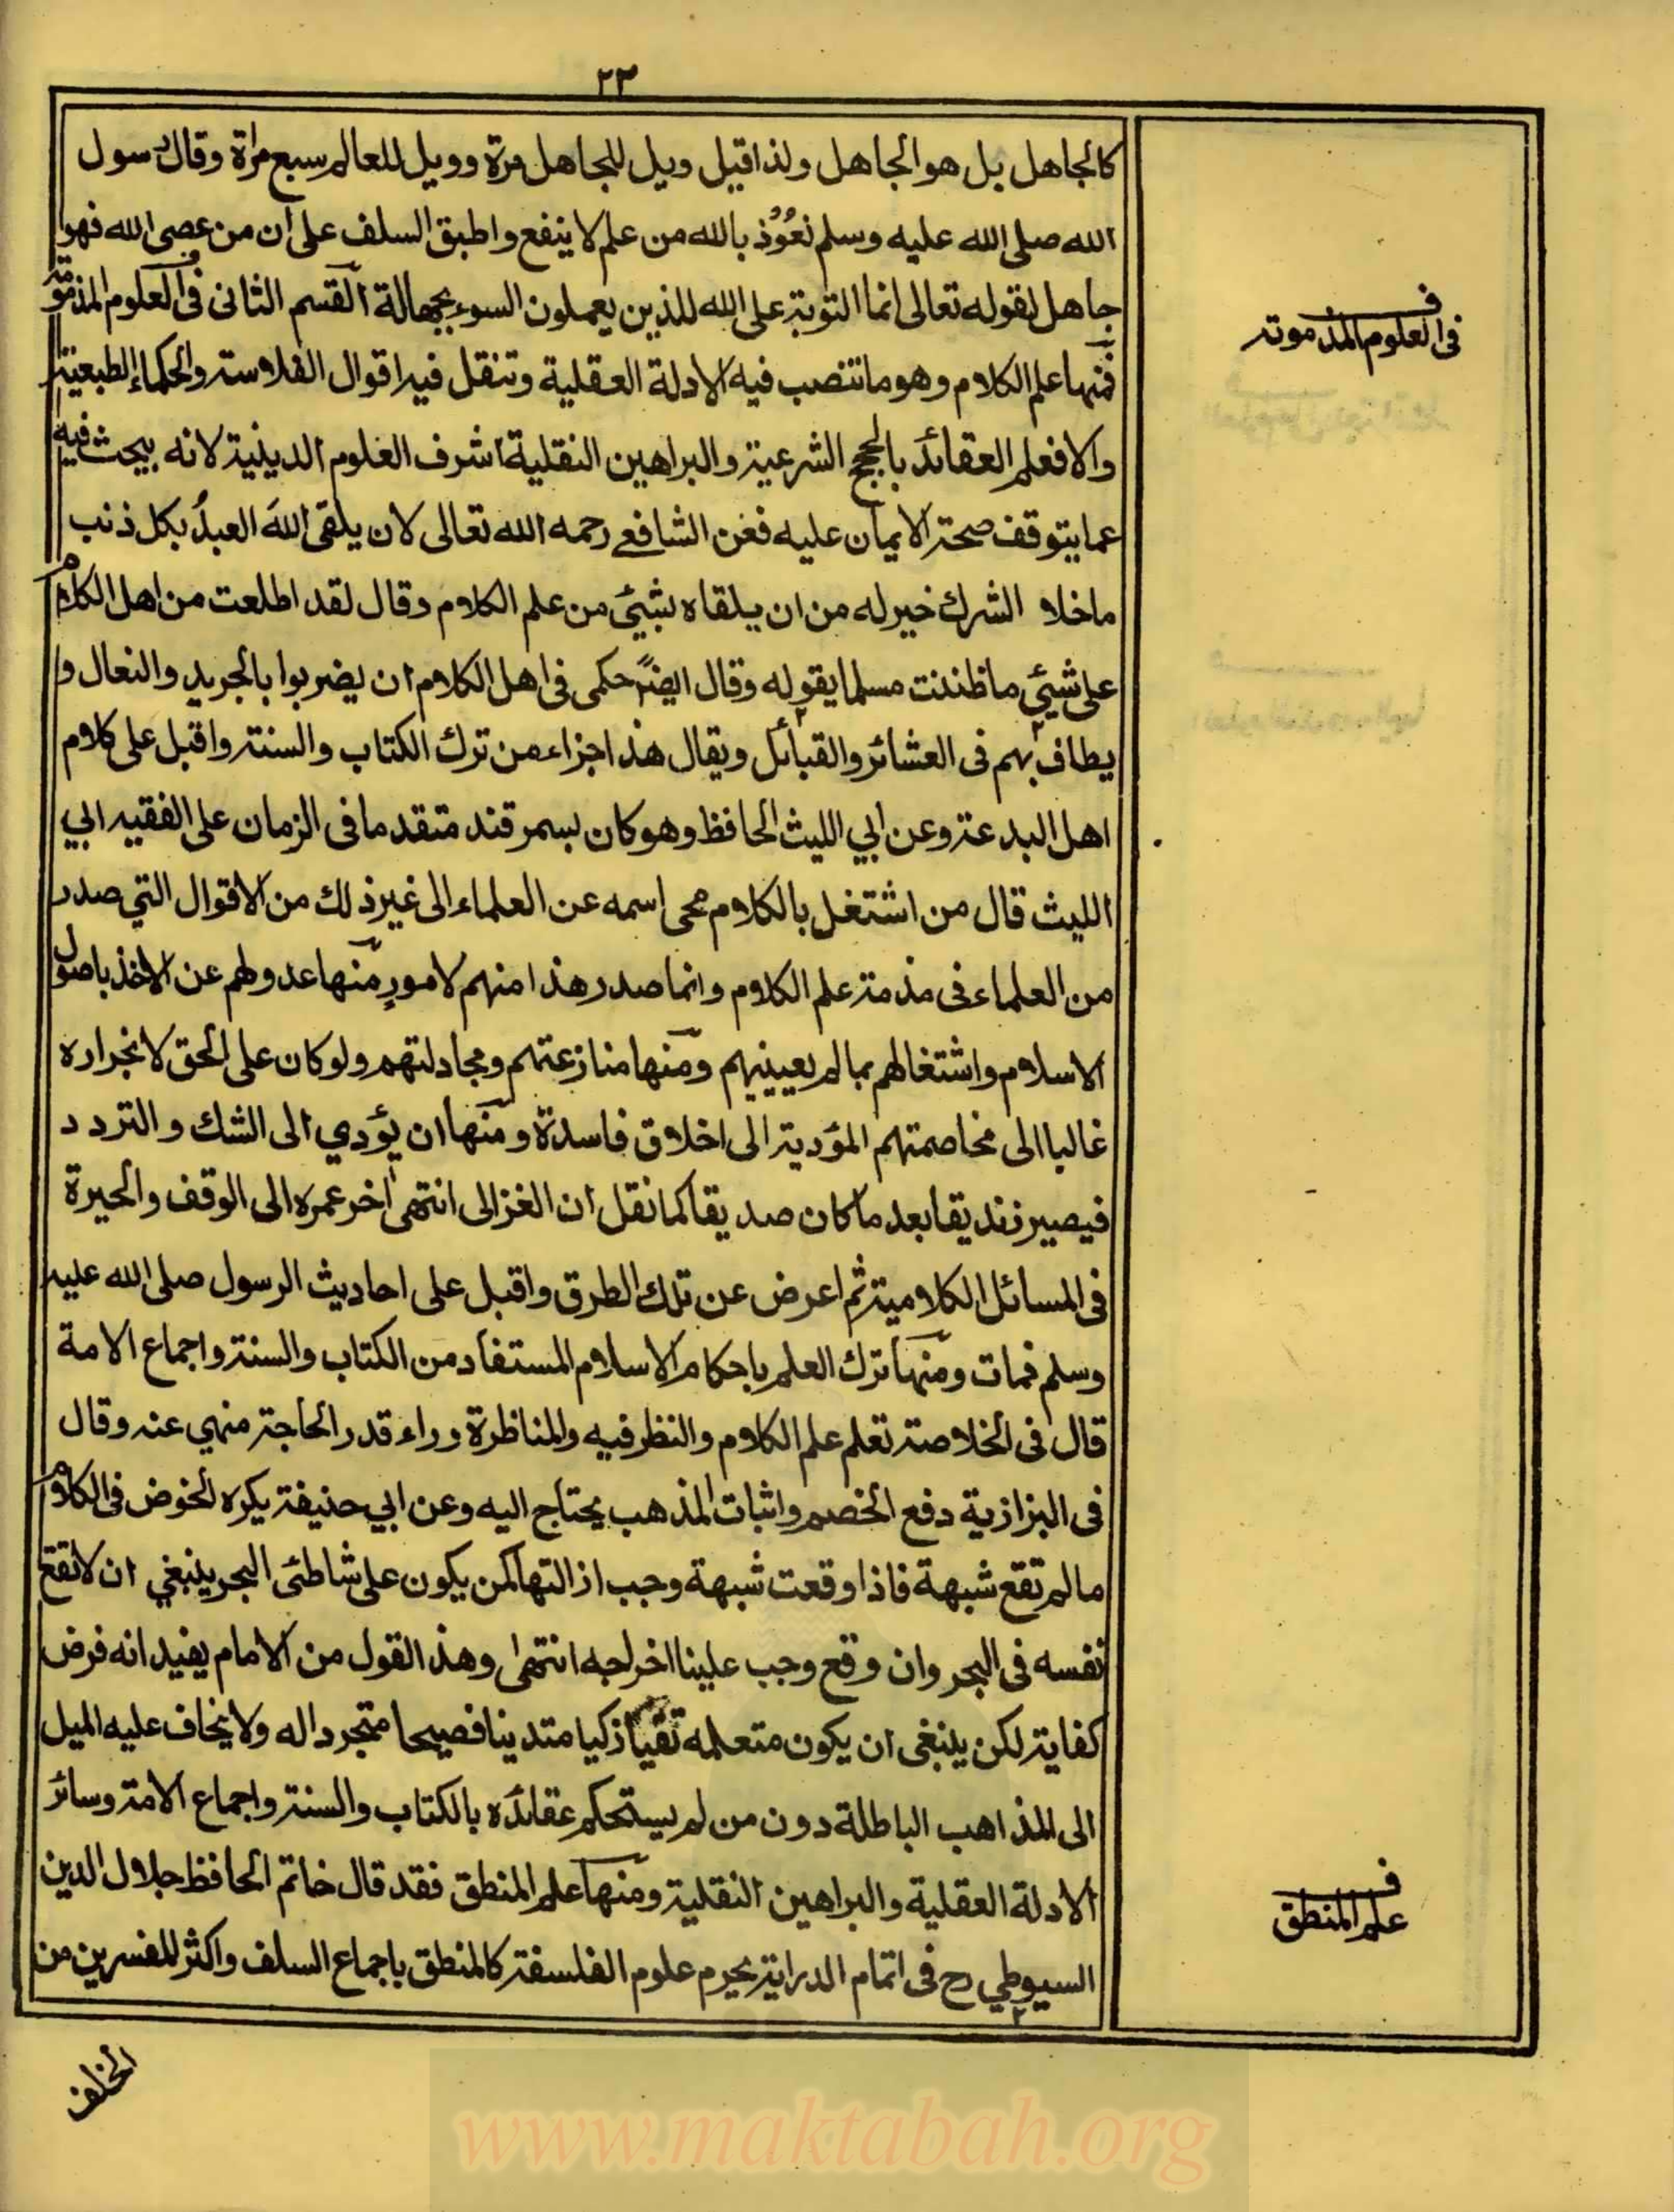 ٢٣
كالجاهل بل هو الجاهل ولذا قيل ويل للجاهل مرة وويل للعالم سبع مراة وقال رسول
الله صلى الله عليه وسلم نعُوُذ بالله من علم لا ينفع واطبق السلف على ان من عصى الله فهو
جاهل لقوله تعالى انما التوبة على الله للذين يعملون السوء بجهالة القسم الثانى فى العلوم المذمومة
فمنها علم الكلام وهو ما تنصب فيه الادلة العقلية وتنقل فيه اقوال الفلاسة والحكماء الطبعية
والا فعلم العقائد بالحجج الشرعية والبراهين النقلية اشرف العلوم الدينية لانه يبحث فيه
عما يتوقف صحة الايمان عليه فعن الشافعے رحمه الله تعالى لان يلقى اللهَ العبدُ بكل ذنب
ما خلا الشرك خير له من ان يلقاه بشيئ من علم الكلام وقال لقد اطلعت من اهل الكلام
على شيئ ما ظننت مسلما يقوله وقال ايضًا حكمى فى اهل الكلام ان يضربوا بالجريد والنعال و
يطاف بهم فى العشائر والقبائل ويقال هذا جزاء من ترك الكتاب والسنة واقبل على كلام
اهل البدعة وعن ابي الليث الحافظ وهو كان بسمرقند متقدما فى الزمان على الفقيه ابي
الليث قال من اشتغل بالكلام محى اسمه عن العلماء الى غير ذلك من الاقوال التي صدر
من العلماء فى مذمة علم الكلام وانما صدر هذا منهم لامورٍ منها عدولهم عن الاخذ باصول
الاسلام واشتغالهم بما لم يعينيهم ومنها منازعتهم ومجادلتهم ولو كان على الحق لانجراره
غالبا الى مخاصمتهم المؤدية الى اخلاق فاسدة ومنها ان يؤدي الى الشك والتردد
فيصير زنديقا بعد ما كان صديقا كما نقل ان الغزالى انتهى أخر عمره الى الوقف والحيرة
فى المسائل الكلامية ثم اعرض عن تلك الطرق واقبل على احاديث الرسول صلى الله عليه
وسلم فمات ومنها ترك العلم باحكام الاسلام المستفاد من الكتاب والسنة واجماع الامة
قال فى الخلاصة تعلم علم الكلام والنظر فيه والمناظرة وراء قدر الحاجة منهي عنه وقال
فى البزازية دفع الخصم واثبات المذهب يحتاج اليه وعن ابي حنيفة يكره الخوض فى الكلام
ما لم تقع شبهة فاذا وقعت شبهة وجب ازالتها كمن يكون على شاطئى البحر ينبغي ان لا تقع
نفسه فى البحر وان وقع وجب علينا اخراجه انتهى وهذا القول من الامام يفيد انه فرض
كفاية لكن ينبغى ان يكون متعلمه تقيا ذكيا متدينا فصيحا متجردا له ولا يخاف عليه الميل
الى المذاهب الباطلة دون من لم يستحكم عقائده بالكتاب والسنة واجماع الامة وسائر
الادلة العقلية والبراهين النقلية ومنها علم المنطق فقد قال خاتم الحافظ جلال الدين
السيوطي رح فى اتمام الدراية يحرم علوم الفلسفة كالمنطق باجماع السلف واكثر المفسرين من
الخلف
فى العلوم المذمومة
علم المنطق
www.maktabah.org